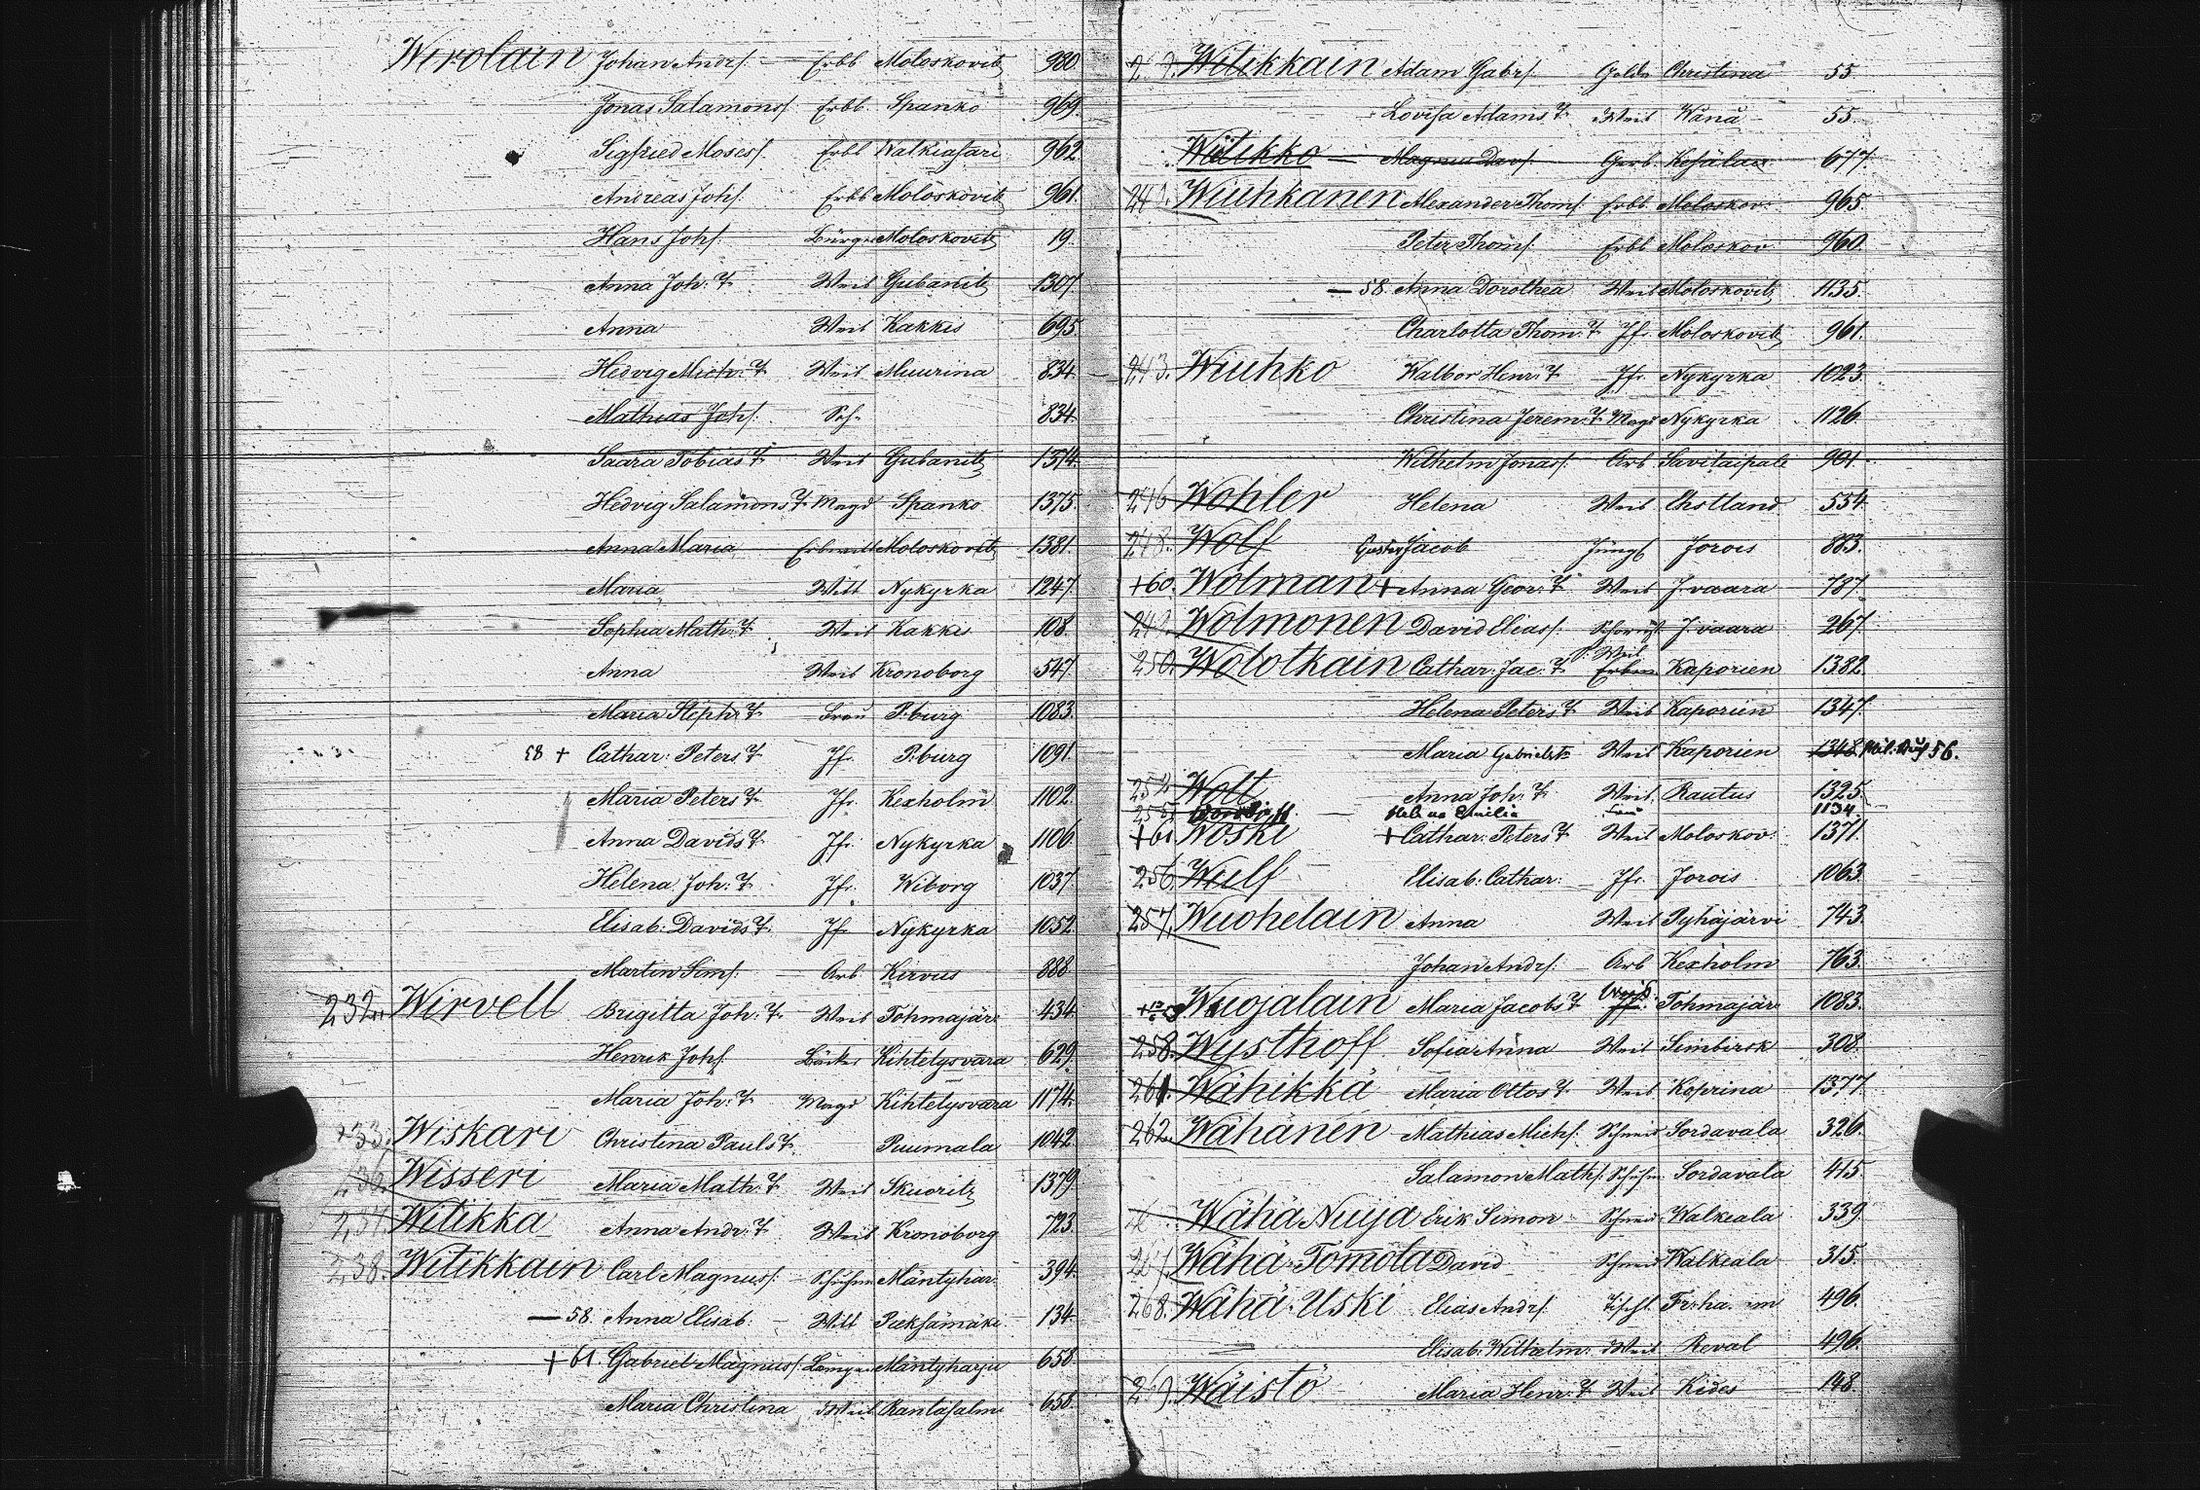 Wirolain Johan Andrs. Erbb Moloskovitz 980
Jonas Salamons. Erbb Spanko 969.
Sigfried Moses. Erbb Walkiasari 962.
Andreas Johs. Erbb Moloskovitz 961.
Hans Johs. Bürger Moloskovitz 19.
Anna Joh. T. Weib Gubanitz 1307.
Anna Weib Kakkis 695.
Hedvig Mich. T. Weib Muurina 834.
Mathias Johs. 834.
Saara Tobias T. Weib Gubanitz 1374.
Hedvig Salamons T. Magd Spanko 1375.
Anna Maria Moloskovitz 1381.
Maria Witt Nykyrka 1247.
Sophia Math. T. Weib Kakkis 108.
Anna Weib Kronoborg 547.
Maria Steph. T. Frau P.burg 1083.
58 + Cathar. Peters T. Jfr. P.burg 1091.
Maria Peters T. Jfr. Kexholm 1102.
Anna Davids T. Jfr. Nykyrka 1106.
Helena Joh. T. Jfr. Wiborg 1037.
Elisab. Davids T. Jfr. Nykyrka 1052.
Martin Sims. Arb Kirvus 888.
232. Wirvell Brigitta Joh. T. Weib Tohmajär. 434.
Henrik Johs. Bäcker Kihtelysvara 629.
Maria Joh. T. Magd Kihtelysvara 1174.
233. Wiskari Christina Pauls T. Puumala 1042.
236. Wisseri Maria Math. T. Weib Skuoritz 1379.
237. Witikka Anna Andr. T. Weib Kronoborg 723.
238. Witikkain Carl Magnus. Schuhm Mäntyhar. 394.
— 58. Anna Elisab. Witt Pieksämäki 134.
+ 61. Gabriel Magnus. Mäntyharju 658.
Maria Christina Weib Rantasalmi 658.
Witikkain Adam Gabrs. Christina 55.
Lovisa Adams T. Weib Wanä 55.
Witikko Magnus Davs. Kesälax 677.
Wiuhkanen Alexander Thoms. Erbb Moloskov. 965.
Peter Thoms. Erbb Moloskov 960.
— 58. Anna Dorothea Weib Moloskovitz 1135.
Charlotta Thom. T. Jfr. Moloskovitz 961.
243. Wiuhko Walbor Henr. T. Jfr. Nykyrka 1023.
Christina Jerem. T. Magd Nykyrka 1126.
Wilhelm Jonas. Arb. Savitaipale 901.
246 Wohler Helena Weib Ehstland 554.
248. Wolf Gustav Jacob Jorois 883.
+60. Wolman + Anna Geor. T. Weib J.vaara 787.
249. Wolmonen David Elias. J.vaara 267.
250. Wolotkain Cathar. Jac. T. Weib Kaporien 1382.
Helena Peters T. Weib Kaporien 1347.
Maria Gabriels T. Weib Kaporien 1348. 56.
252 Wolt Anna Joh. T. Weib Rautus 1325.
255 Helena Emilia Frau 1134.
+61 Woski + Cathar. Peters T. Weib Moloskov. 1371.
256. Wulf Elisab. Cathar. Jfr. Jorois 1063.
257. Wuohelain Anna Weib Pyhäjärvi 743.
Johan Andrs. Arb Kexholm 763.
Wuojalain Maria Jacobs T. Weib Jfr. Tohmajär. 1083.
258. Wysthoff Sofia Anna Weib Simbirsk 308.
261. Wähikkä Maria Ottos T. Weib Koprina 1377.
262. Wähänen Mathias Michs. Schneid Sordavala 326.
Salamon Maths. Schuhm Sordavala 415.
Wähä Nuija Erik Simon Schneid Walkeala 339.
267. Wähä-Tomola David Schneid Walkeala 315.
268. Wähä-Uski Elias Andrs. Tischl. Fr:ha.m 496.
Elisab. Wilhelm. Weib Reval 496.
269. Wäistö Maria Henr. T. Weib Kides 148.